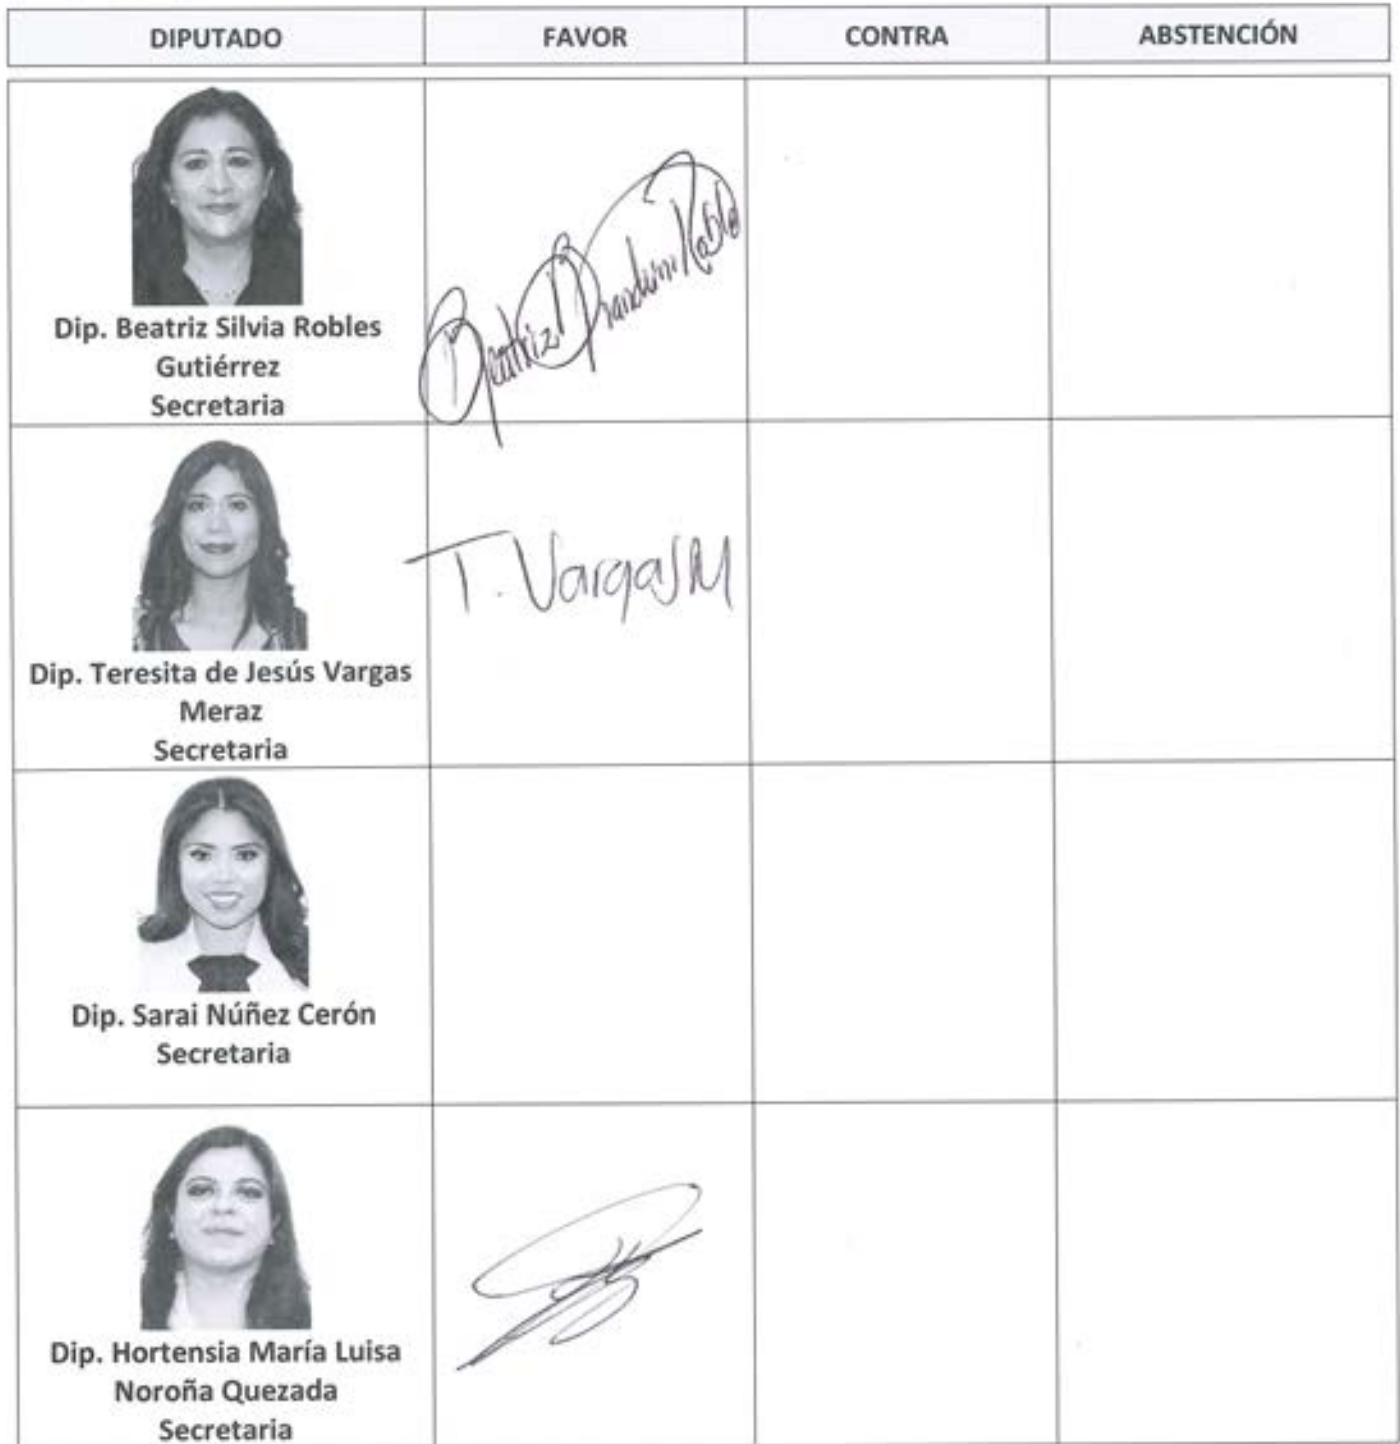 DIPUTADO FAVOR CONTRA ABSTENCIÓN
Dip. Beatriz Silvia Robles
Gutiérrez
Secretaria
Beatriz
Dip. Teresita de Jesús Vargas
Meraz
Secretaria
T. Vargas M
Dip. Sarai Núñez Cerón
Secretaria
Dip. Hortensia María Luisa
Noroña Quezada
Secretaria